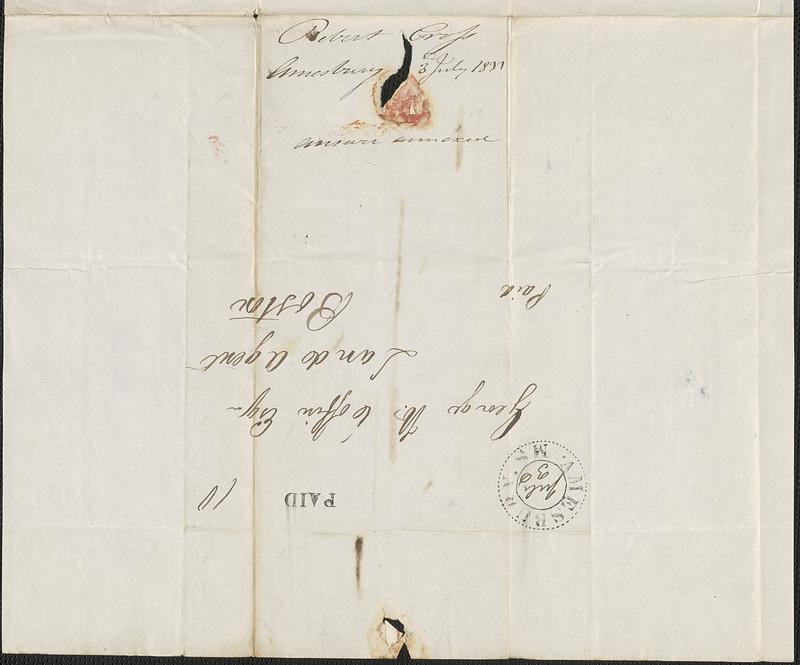 Robert Cross
Amesbury 3d July 18
answer annexed
AMESBURY. MS.
July
3
PAID
10
George W. Coffin Esq
Land Agent
Boston
Paid